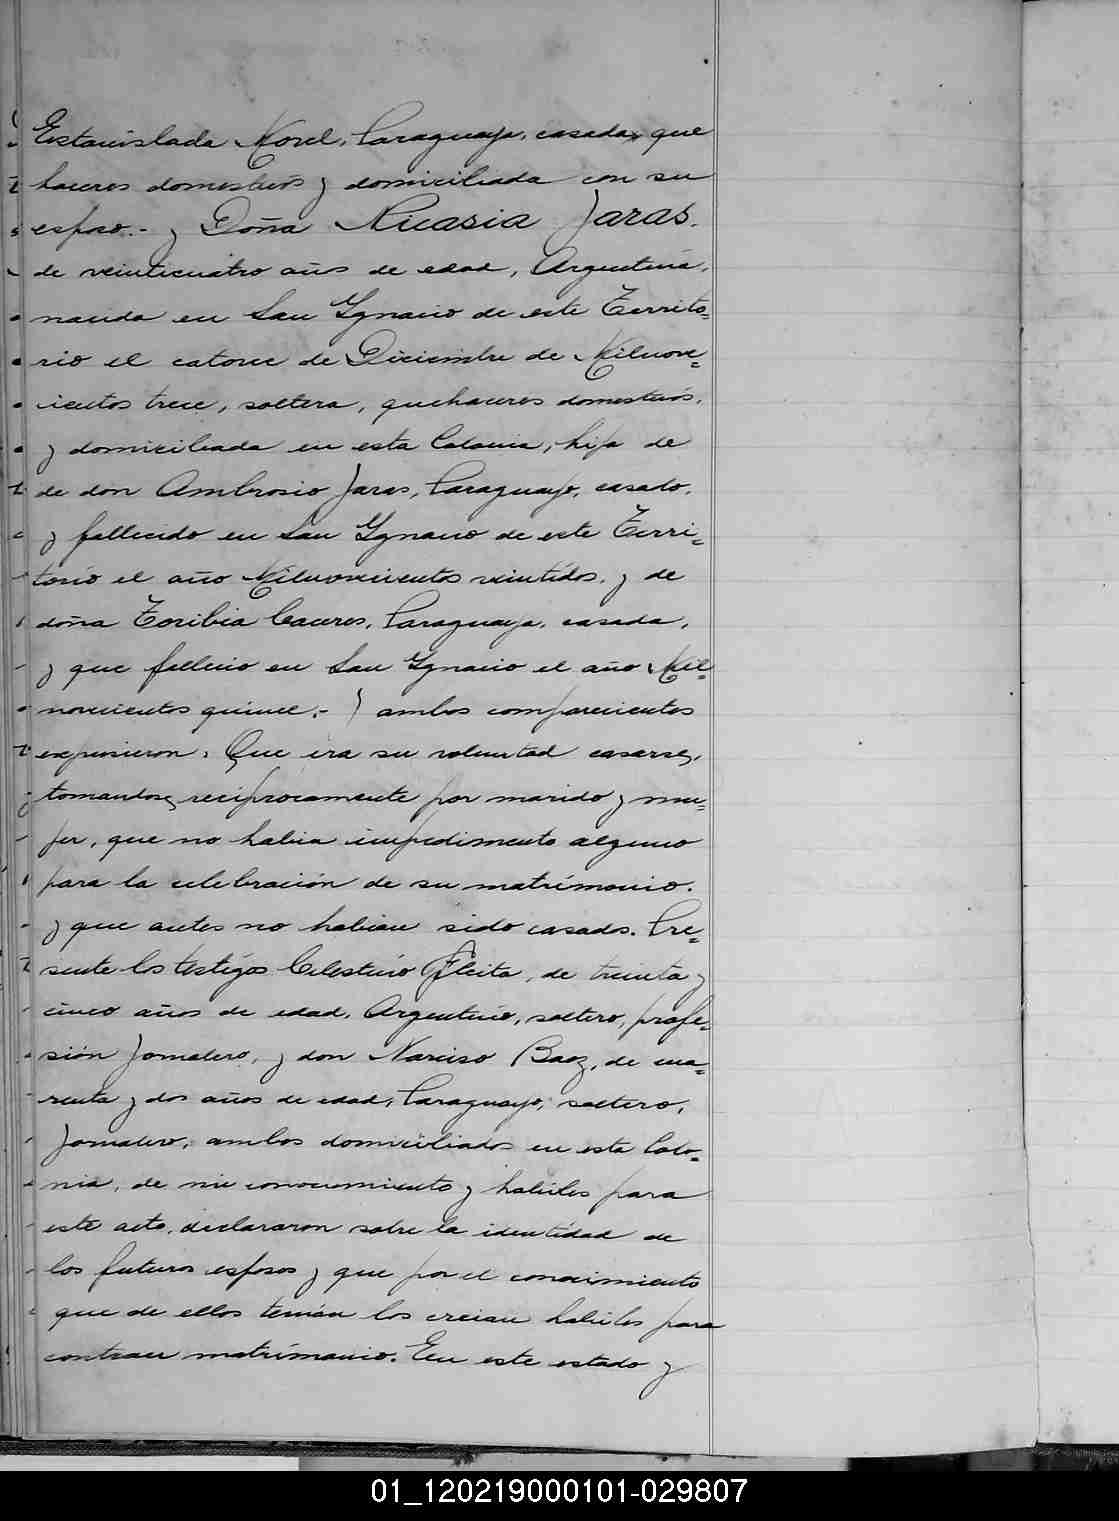 Estanislada Morel, Paraguaya, casada, que
haceres domesticos y domiciliada con su
esposo.- y Doña Nicasia Jaras.
de veinticuatro años de edad, Argentina,
nacida en San Ygnacio de este Territo=
rio el catorce de Diciembre de Milnove=
cientos trece, soltera, quehaceres domesticos,
y domiciliada en esta Colonia, hija de
de don Ambrosio Jaras, Paraguayo, casado,
y fallecido en San Ygnacio de este Terri=
torio el año Milnovecientos veintidos, y de
doña Toribia Caceres, Paraguaya, casada,
y que fallecio en San Ygnacio el año Mil=
novecientos quince.- y ambos comparecientes
expusieron: Que era su voluntad casarse,
tomandose reciprocamente por marido y mu=
jer, que no habia impedimento alguno
para la celebración de su matrimonio.
y que antes no habian sido casados. Pre=
sente los testigos Celestino Fleita, de treinta y
cinco años de edad, Argentino, soltero, profe=
sión Jornalero, y don Narciso Baez, de cua=
renta y dos años de edad, Paraguayo, soltero,
Jornalero, ambos domiciliados en esta Colo=
nia, de mi conocimiento y habiles para
este acto, declararon sobre la identidad de
los futuros esposos y que por el conocimiento
que de ellos tenian los creian habiles para
contraer matrimonio. En este estado y
01_120219000101-029807